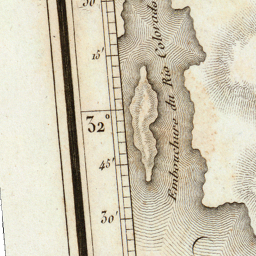 30'
15'
32°
45'
30'
Embouchure du Rio Colorado